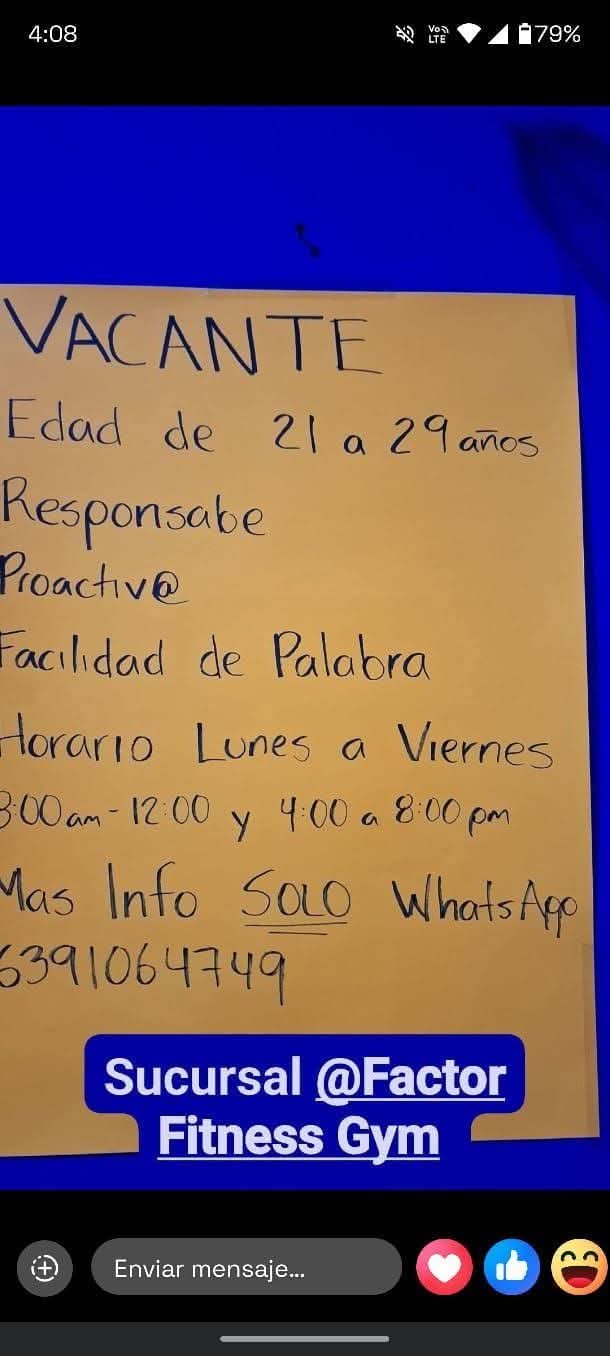 4:08
Vo) LTE
79%
VACANTE
Edad de 21 a 29 años
Responsabe
Proactiv@
Facilidad de Palabra
Horario Lunes a Viernes
8:00 am - 12:00 y 4:00 a 8:00 pm
Mas Info SOLO WhatsApp
6391064749
Sucursal @Factor
Fitness Gym
Enviar mensaje...